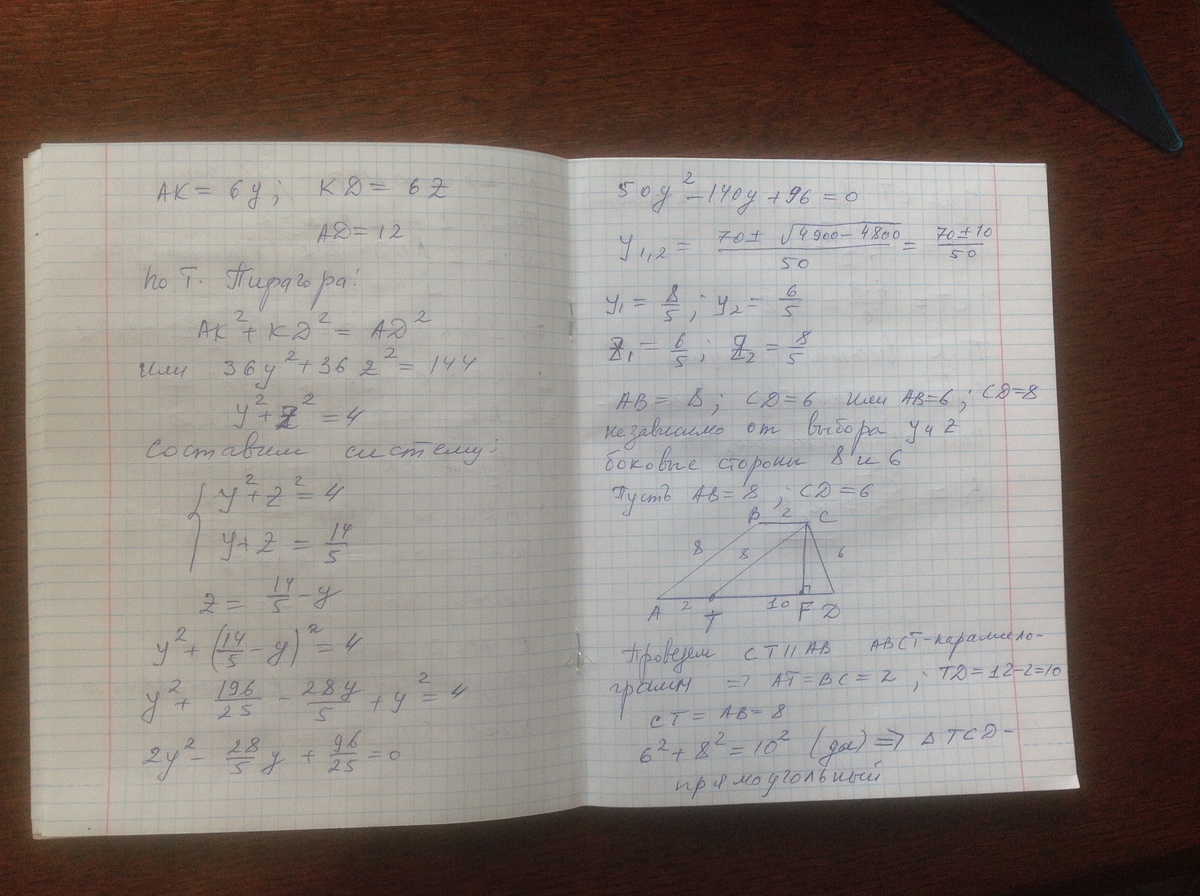 AK = 6y; KD = 6z
AD = 12
по т. Пифагора:
AK² + KD² = AD²
или 36y² + 36z² = 144
y² + z² = 4
Составим систему:
y² + z² = 4
y + z = 14/5
z = 14/5 - y
y² + (14/5 - y)² = 4
y² + 196/25 - 28y/5 + y² = 4
2y² - 28/5 y + 96/25 = 0
50y² - 140y + 96 = 0
y₁,₂ = (70 ± √(4900 - 4800))/50 = (70 ± 10)/50
y₁ = 8/5; y₂ = 6/5
z₁ = 6/5; z₂ = 8/5
AB = 8; CD = 6 или AB = 6; CD = 8
независимо от выбора y и z
боковые стороны 8 и 6
Пусть AB = 8; CD = 6
B 2 C
8 8 6
A 2 T 10 F D
Проведем CT || AB ABCT - параллело-
грамм => AT = BC = 2; TD = 12 - 2 = 10
CT = AB = 8
6² + 8² = 10² (да) => △TCD -
прямоугольный